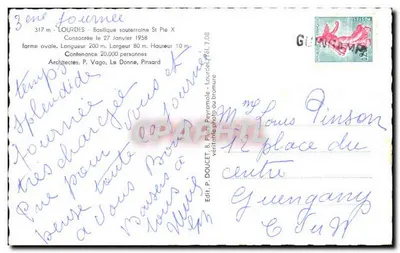 3eme Journée
317 m - LOURDES - Basilique souterraine St Pie X
Consacrée le 27 Janvier 1958
forme ovale, Longueur 200 m. Largeur 80 m. Hauteur 10 m.
Contenance 20.000 personnes
Architectes, P. Vago, Le Donne, Pinsard
temps
splendide
Journée
très chargée
Prie pour vous et
pense toute la Journée
à vous Bons
Baisers à
tous
Edit. P. DOUCET, 8, Place Peyramale - Lourdes
véritable photo au bromure
Mme Louis Pinson
12 place du
centre
Guengany
C du N